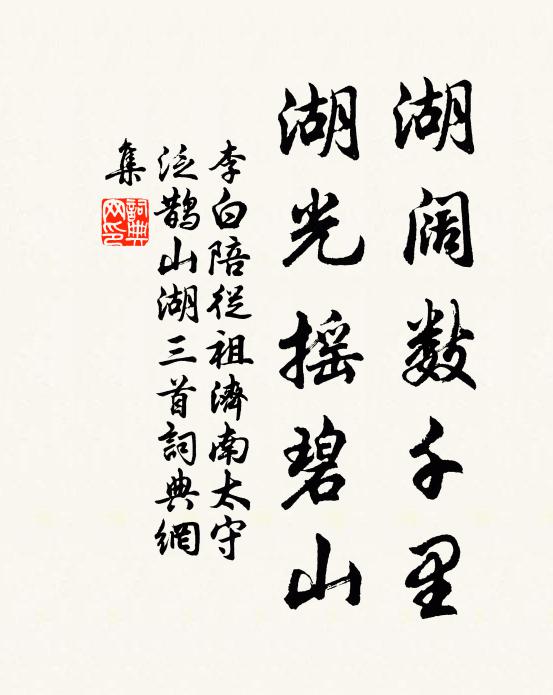 湖阔数千里
湖光摇碧山
李白陪從祖濟南太守
泛鹊山湖三首詞典網
集
詞典
网印